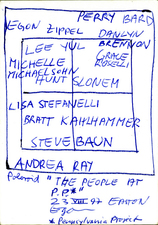 PERRY BARD
EGON ZIPPEL
DANLYN
BRENNON
LEE YUL
GRACE
ROSELLI
MICHELLE
MICHAELSOHN
HUNT SLONEM
LISA STEFANELLI
BRATT KAHLHAMMER
STEVE BAUN
ANDREA RAY
Polaroid "THE PEOPLE AT
P.P.*"
23 VIII 97 EASTON
Egon
* Pennsylvania Project